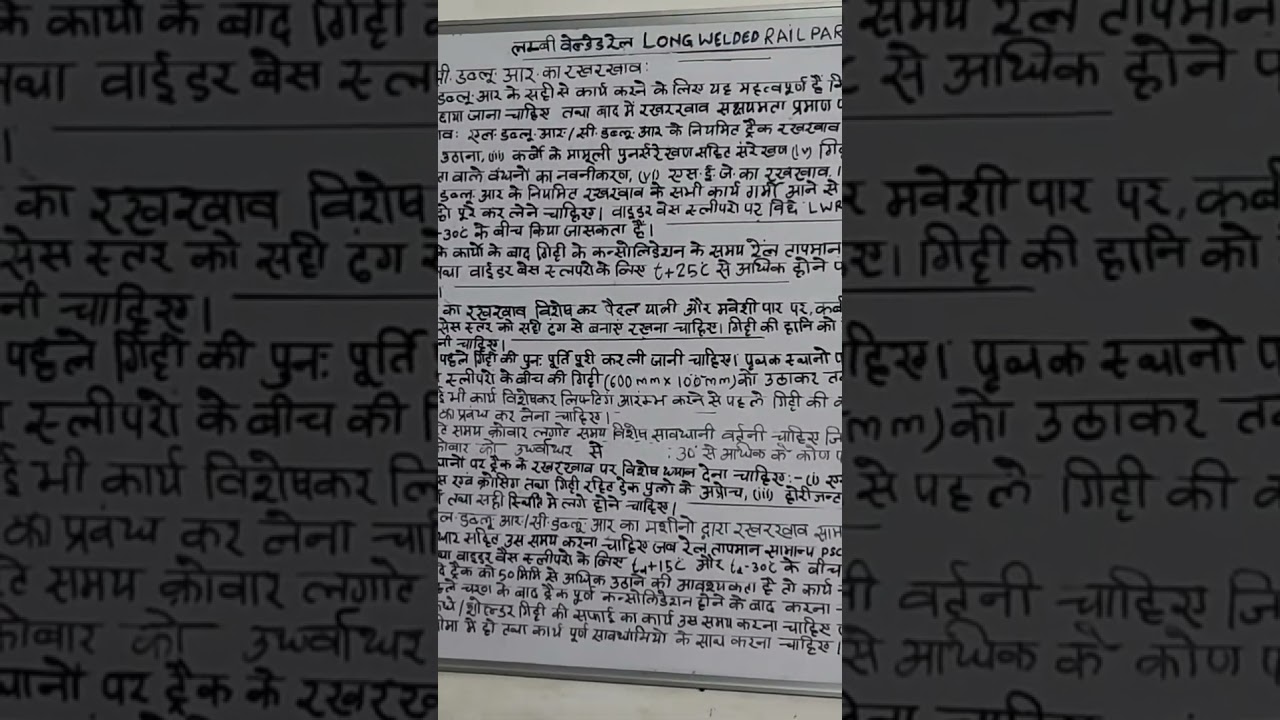 लम्बी वेल्डेड रेल LONG WELDED RAIL PAR
सी. डब्लू. आर. का रखरखाव:
डब्लू. आर के सही से कार्य करने के लिए यह महत्वपूर्ण है
जाना चाहिए तथा बाद में रखरखाव सक्षमता प्रमाण
वः एल. डब्लू. आर./सी. डब्लू. आर के नियमित ट्रैक रखरखाव
उठाना, (iii) कर्वो के मामूली पुनर्सरेखण सहित संरेखण (iv)
वाले बंधनों का नवनीकरण, (vi) एस. ई. जे. का रखरखाव,
डब्लू. आर के नियमित रखरखाव के सभी कार्य गर्मी आने से
पूरे कर लेने चाहिए। वाइडर बेस स्लीपरो पर बिछे LWR
-30c के बीच किया जा सकता है।
के कार्यो के बाद गिट्टी के कन्सोलिडेशन के समय रेल तापमान
तथा वाईडर बेस स्लपरो के लिए t+25c से अधिक होने प
का रखरखाव विशेष कर पैदल यात्री और मवेशी पार पर, कर्व
सेस स्तर को सही ढंग से बनाएं रखना चाहिए। गिट्टी की हानि को
नी चाहिए।
पहले गिट्टी की पुनः पूर्ति पूरी कर ली जानी चाहिए। पृथक स्थानो प
स्लीपरो के बीच की गिट्टी (600mm x 100mm) को उठाकर त
ई भी कार्य विशेषकर लिफ्टिंग आरम्भ करने से पहले गिट्टी की
का प्रबंध कर लेना चाहिए।
टे समय क्रोवार लगाते समय विशेष सावधानी वर्तनी चाहिए जि
क्रोवार को उर्ध्वाधर से 30° से अधिक के कोण प
थानों पर ट्रैक के रखरखाव पर विशेष ध्यान देना चाहिए:- (i) एस
स एवं क्रोसिंग तथा गिट्टी रहित डेक पुलो के अप्रोच, (iii) होरीजन्ट
तथा सही स्थिति में लगे होने चाहिए।
ल. डब्लू आर/सी. डब्लू. आर का मशीनो द्वारा रखरखाव साम
सहित उस समय करना चाहिए जब रेल तापमान सामान्य PSC
था वाइडर बेस स्लीपरो के लिए td+15c और td-30c के बीच
ट्रैक को 50 मिमि से अधिक उठाने की आवश्यकता है तो कार्य
ले चरण के बाद ट्रैक पूर्ण कन्सोलिडेशन होने के बाद करना
/शोल्डर गिट्टी की सफाई का कार्य उस समय करना चाहिए
सीमा में हो तथा कार्य पूर्ण सावधानियो के साथ करना चाहिए।